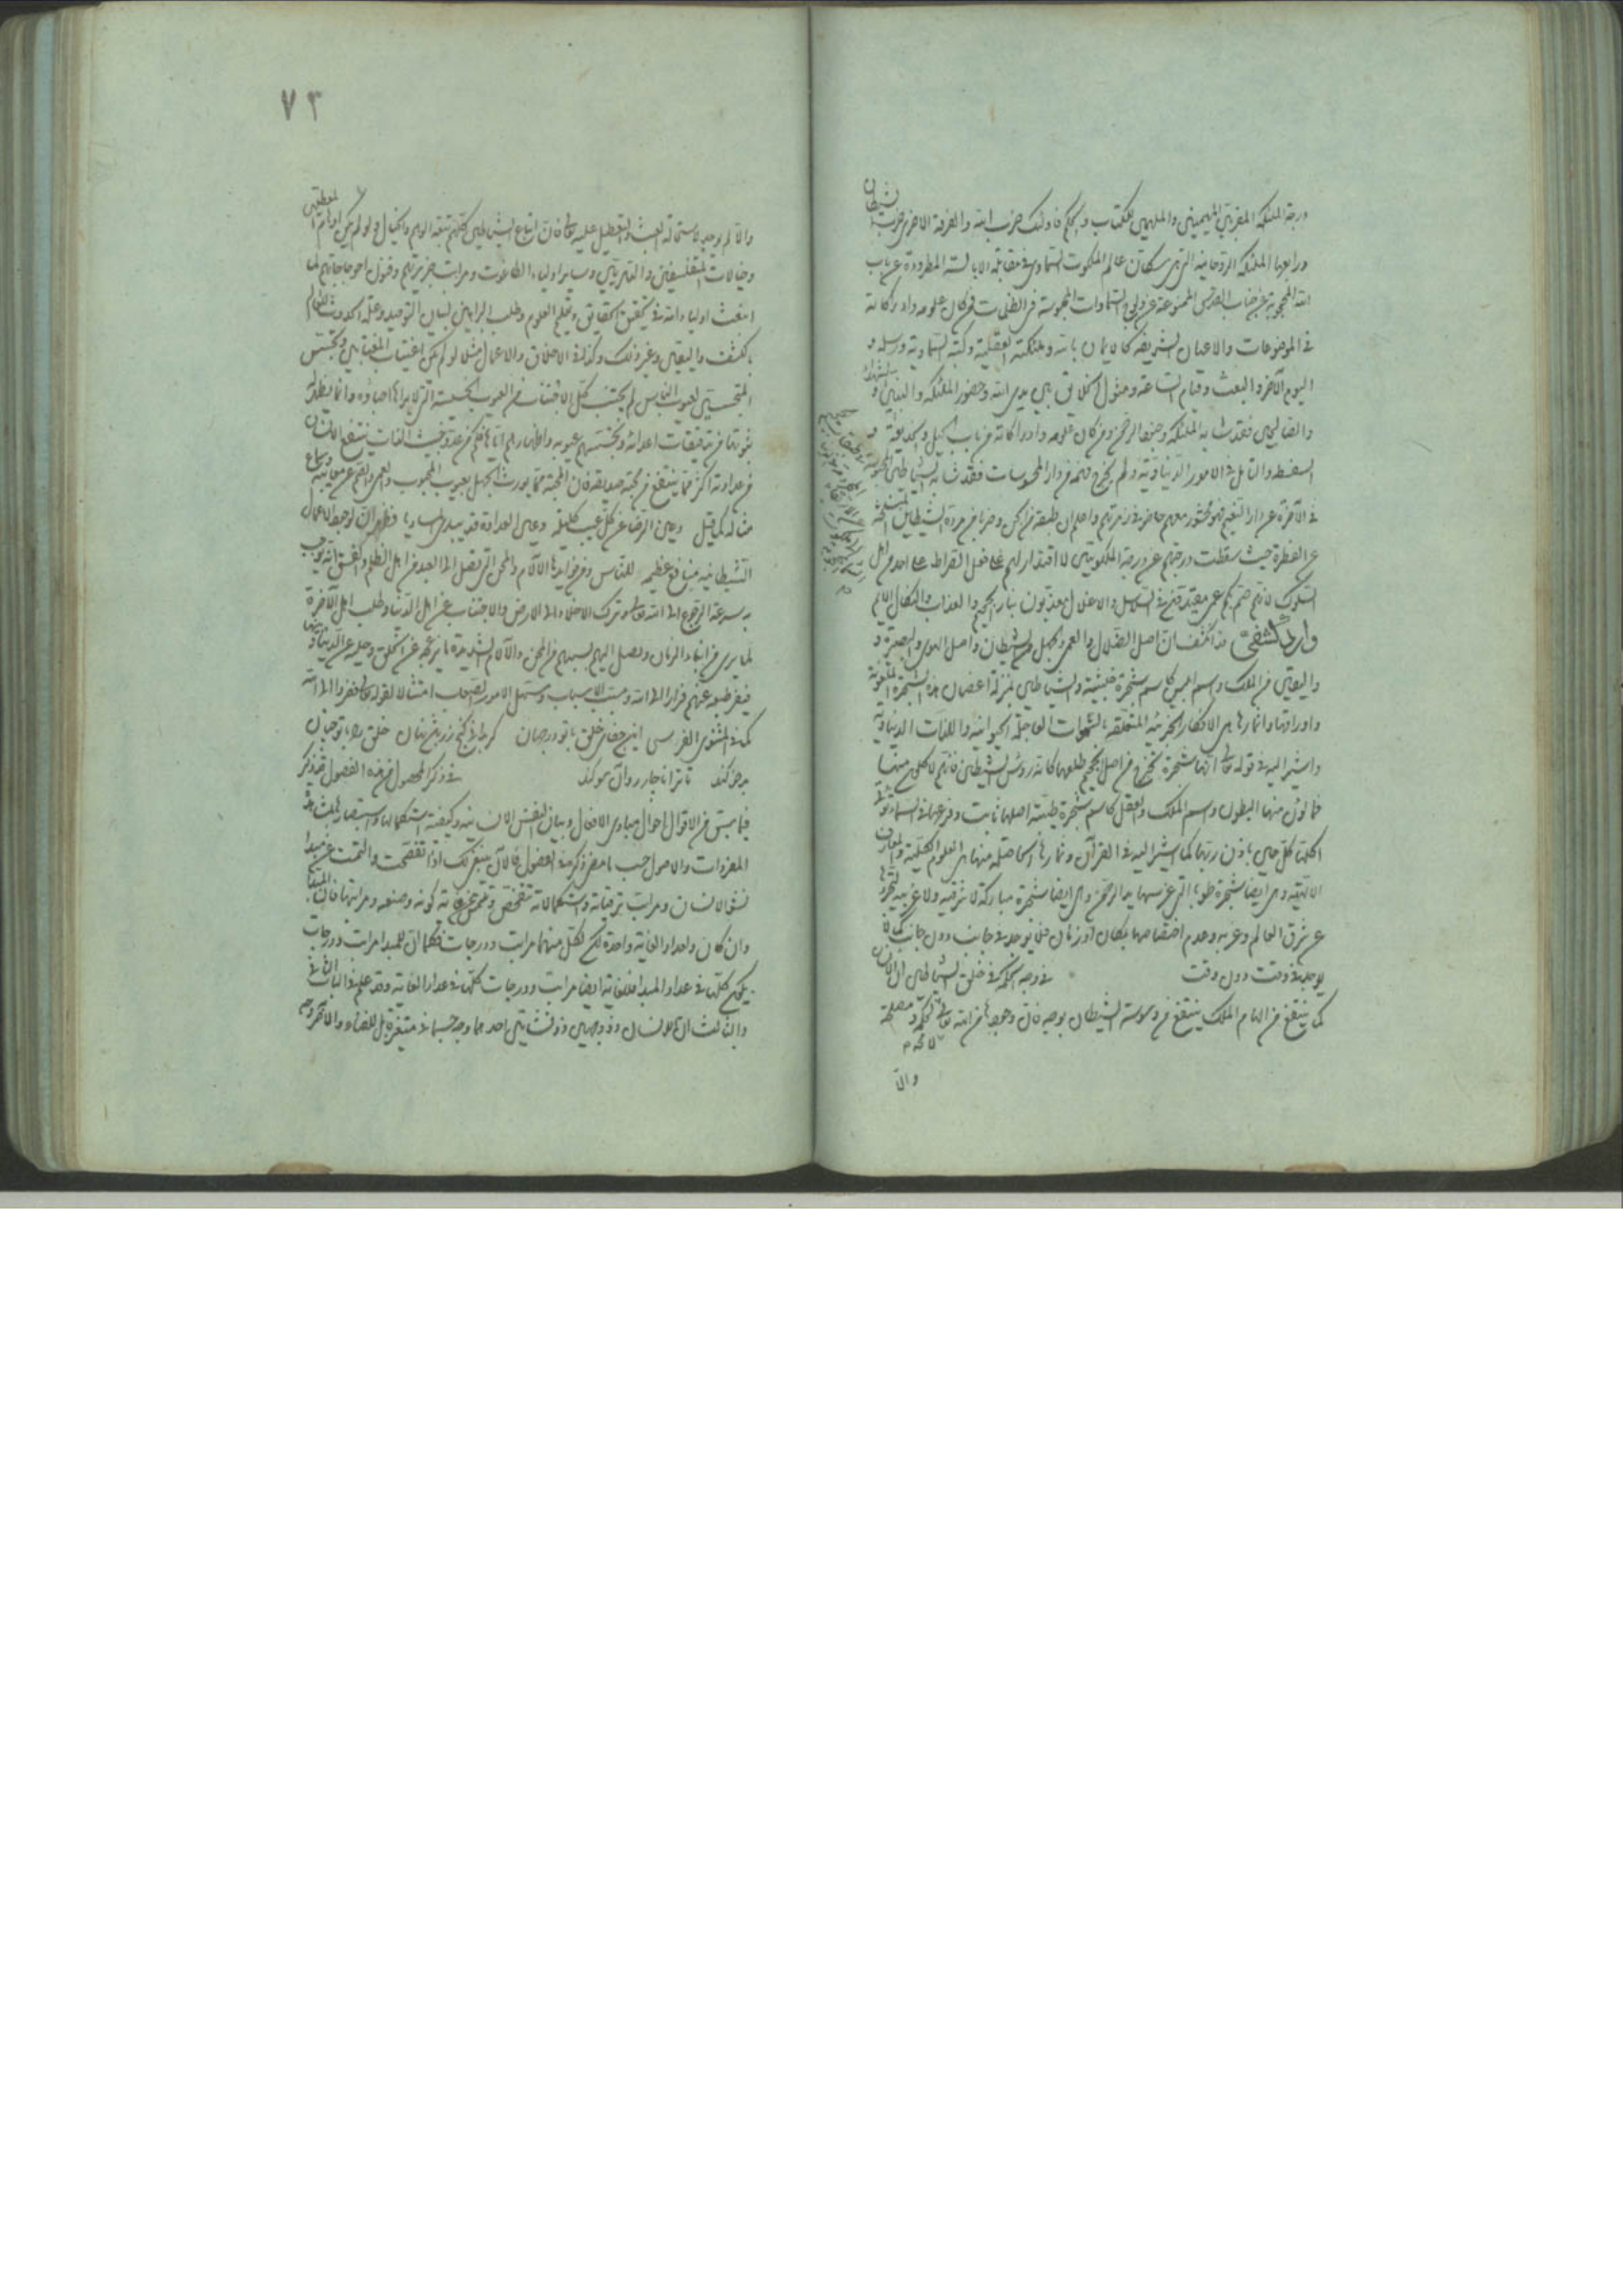 درجة الملئكة المقربين المهيمين والملهمين للكتاب والحكم فاولئك حزب الله والفرقة الاخرى حزب الشيطان
ورابعها الملئكة الروحانية الذين هم سكان عالم الملكوت السماوى فى مقابلة الابالسة المطرودة عن باب
الله المحجوبة عن جناب القدس الممنوعة عن ولوج السماوات المحبوسة فى الظلمات فمن كان علومه وادراكاته
فى الموضوعات والاعيان الشريفة كالايمان بالله وملئكته العظيمة وكتبه السماوية ورسله و
اليوم الآخر والبعث وقيام الساعة ومثول الخلايق بين يدى الله وحضور الملئكة والنبيين والشهداء
والصالحين فقد شابه الملئكة وحزب الرحمن ومن كان علومه وادراكاته من باب الحيل والخديعة و
السفسطة والتامل فى الامور الدنياوية ولم يخرج فهمه من دار المحسوسات فقد شابه الشياطين المحبوسة
فى الآخرة عن دار النعيم فهو محشور معهم فى زمرتهم واعلم ان طبقة من الجن وضربا من مردة الشياطين
عن الفطرة حيث سقطت درجتهم عن درجة الملكوتيين لا اقتدار لهم على فعل القراط على احد من اهل
السلوك لانهم صم بكم عمى مقيدون فى السلاسل والاغلال معذبون بنار الجحيم والعذاب والنكال الاليم
وارد كشفى قد انكشف ان اصل الضلال والعمى والجهل من الشيطان واصل الهدى والبصيرة و
واليقين من الملك واسم ابليس كاسم شجرة خبيثة والشياطين بمنزلة اغصان هذه الشجرة الملعونة
واوراقها واثمارها هى الافكار الجزئية المتعلقة بالشهوات العاجلة الحيوانية واللذات الدنياوية
واشير اليه فى قوله تعالى انها شجرة تخرج فى اصل الجحيم طلعها كانه رؤس الشياطين فانهم لاكلون منها
فمالؤن منها البطون واسم الملك والعقل كاسم شجرة طيبة اصلها ثابت وفرعها فى السماء تؤتى
اكلها كل حين باذن ربها كما اشير اليه فى القرآن وثمارها الحاصلة منها هى العلوم الكلية والمعارف
الالهية وهى ايضا شجرة طوبا التى غرسها يد الرحمن وهى ايضا شجرة مباركة لا شرقية ولا غربية لتجردها
عن شرق العالم وغربه وعدم اختصاصها بمكان او زمان حتى توجد فى جانب دون جانب كما لا
يوجد فى وقت دون وقت فى وجه الحكمة فى خلق الشياطين ان الانسان
كما ينتفع من الهام الملك ينتفع من وسوسة الشيطان بوجه فان وجودها من الله تعالى لحكمة ومصلحة
لا محة م
والا
٧٣
والا لم يوجد لاستحالة العبث والتعطيل عليه تعالى فان اتباع الشياطين كلهم تبعة الوهم والخيال ولو لم يكن اوهام المعطلين
وخيالات المتفلسفين والدهريين وساير اولياء الطاغوت ومراتب جربزتهم وفنون اعوجاجاتهم لما
انبعث اولياء الله فى تحقيق الحقايق وتعلم العلوم وطلب البراهين لبيان التوحيد وعلة الحدوث للعالم
بالكشف واليقين وغير ذلك وكذا فى الاخلاق والاعمال مثلا لو لم يكن اغتياب المغتابين وتجسس
المتجسسين لعيوب الناس لم يجتنب كل الاجتناب من العيوب الخسيسة التى لا يراها احباؤه وانما يظهر له
ثبوتها من تدقيقات اعدائه وتجسسهم عيوبه واظهارهم اياها فكم من عدو خبيث الذات ينتفع الانسان
من عداوته اكثر مما ينتفع من محبة صديقه فان المحبة مما يورث الجهل بعيوب المحبوب والعمى والصمم عن معاينة وسماع
مثاله كما قيل وعين الرضا عن كل عيب كليلة وعين العداوة قد تبدى المساويا فظهر ان لوجود الاعمال
الشيطانية منافع عظيمة للناس ومن فوايدها الآلام والمحن التى تصل الى العبد من اهل الظلم والفسق انه يوجب
به سرعة الرجوع الى الله تعالى وترك الاخلاد الى الارض والاجتناب عن اهل الدنيا وطلب اهل الآخرة
لما يرى من ابناء الزمان ويصل اليهم بسببهم من المحن والآلام الشديدة ما يزعجه عن الخلق وحيله عن الدنيا
فينفر طبعه عنهم فرارا الى الله ومسبب الاسباب ومسهل الامور الصعاب امتثالا لقوله تعالى ففروا الى الله
كما فى المثنوى الفرسى اين جفاى خلق با تو در جهان گر بدانى گنج زر باشد نهان خلق را با تو چنان
بدخو كند تا ترا ناچار رو آن سو كند فى ذكر المحصول من هذه الفصول قد ذكر
فيما سبق من الاقوال احوال مبادى الافعال وبيان النفس الانسانية وكيفية استكمالها
المفردات والاصول حسب ما مضى ذكره فى الفصول فالآن ينبغى لك اذا تفحصت والتمست عن مبدا
نشو الانسان ومراتب ترقياته واستكمالاته تتفحص وتفتش عن غاية كونه وصنعه ومراتبها فان المبدأ
وان كان واحدا والغاية واحدة لكن لكل منهما مراتب ودرجات فكما ان للمبدا مراتب ودرجات
يكون كلها فى عداد المبدا فللغاية ايضا مراتب ودرجات كلها فى عداد الغاية وقد علم فى الباب
والثالث ان الانسان ذو وجهين وذو نشأتين احدهما وجه جسمانى متغير قابل للفناء والآخر روحـ